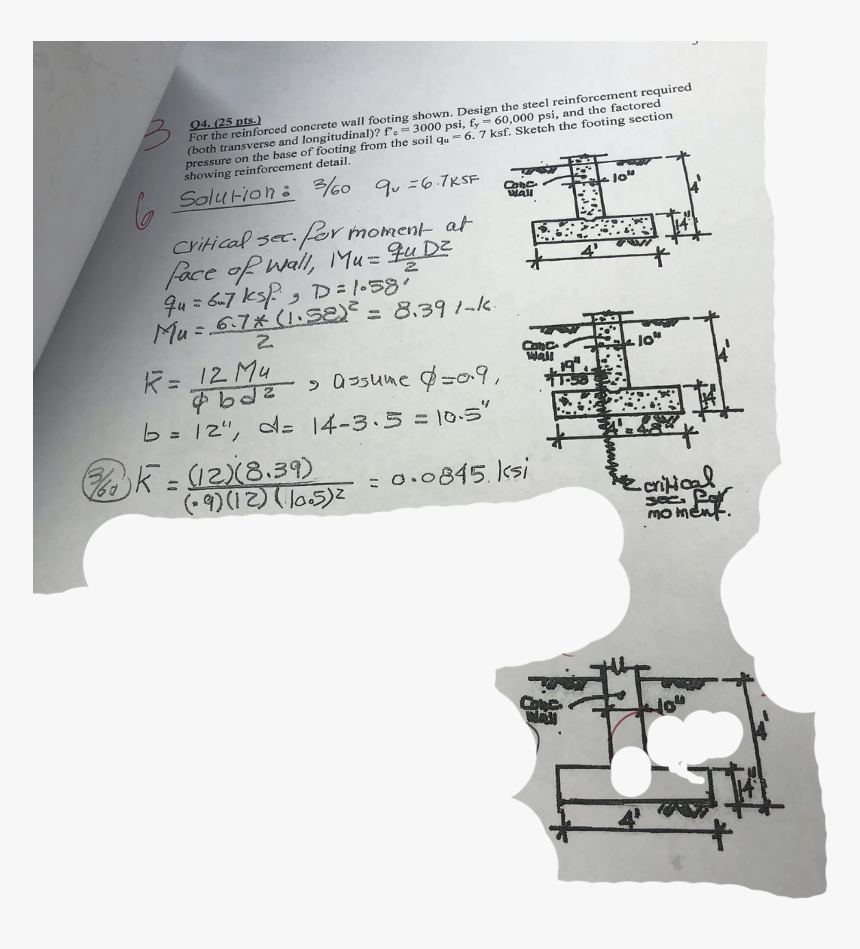 3
Q4. (25 pts.)
For the reinforced concrete wall footing shown. Design the steel reinforcement required
(both transverse and longitudinal)? f'c = 3000 psi, fy = 60,000 psi, and the factored
pressure on the base of footing from the soil qu = 6. 7 ksf. Sketch the footing section
showing reinforcement detail.
6
Solution: 3/60 qu = 6.7 KSF
Conc. Wall
10"
4'
14"
4'
critical sec. for moment at
face of Wall, Mu = qu D²/2
qu = 6.7 ksf, D = 1.58'
Mu = 6.7 * (1.58)²/2 = 8.39 1-k
K̄ = 12 Mu/ϕ b d², assume ϕ=0.9,
b = 12", d = 14-3.5 = 10.5"
3/60
K̄ = (12)(8.39)/(.9)(12)(10.5)² = 0.0845 ksi
Conc. Wall
10"
19"
1.58'
4'
14"
4' = 48"
critical
sec. for
moment.
Conc. Wall
10"
4'
14"
4'